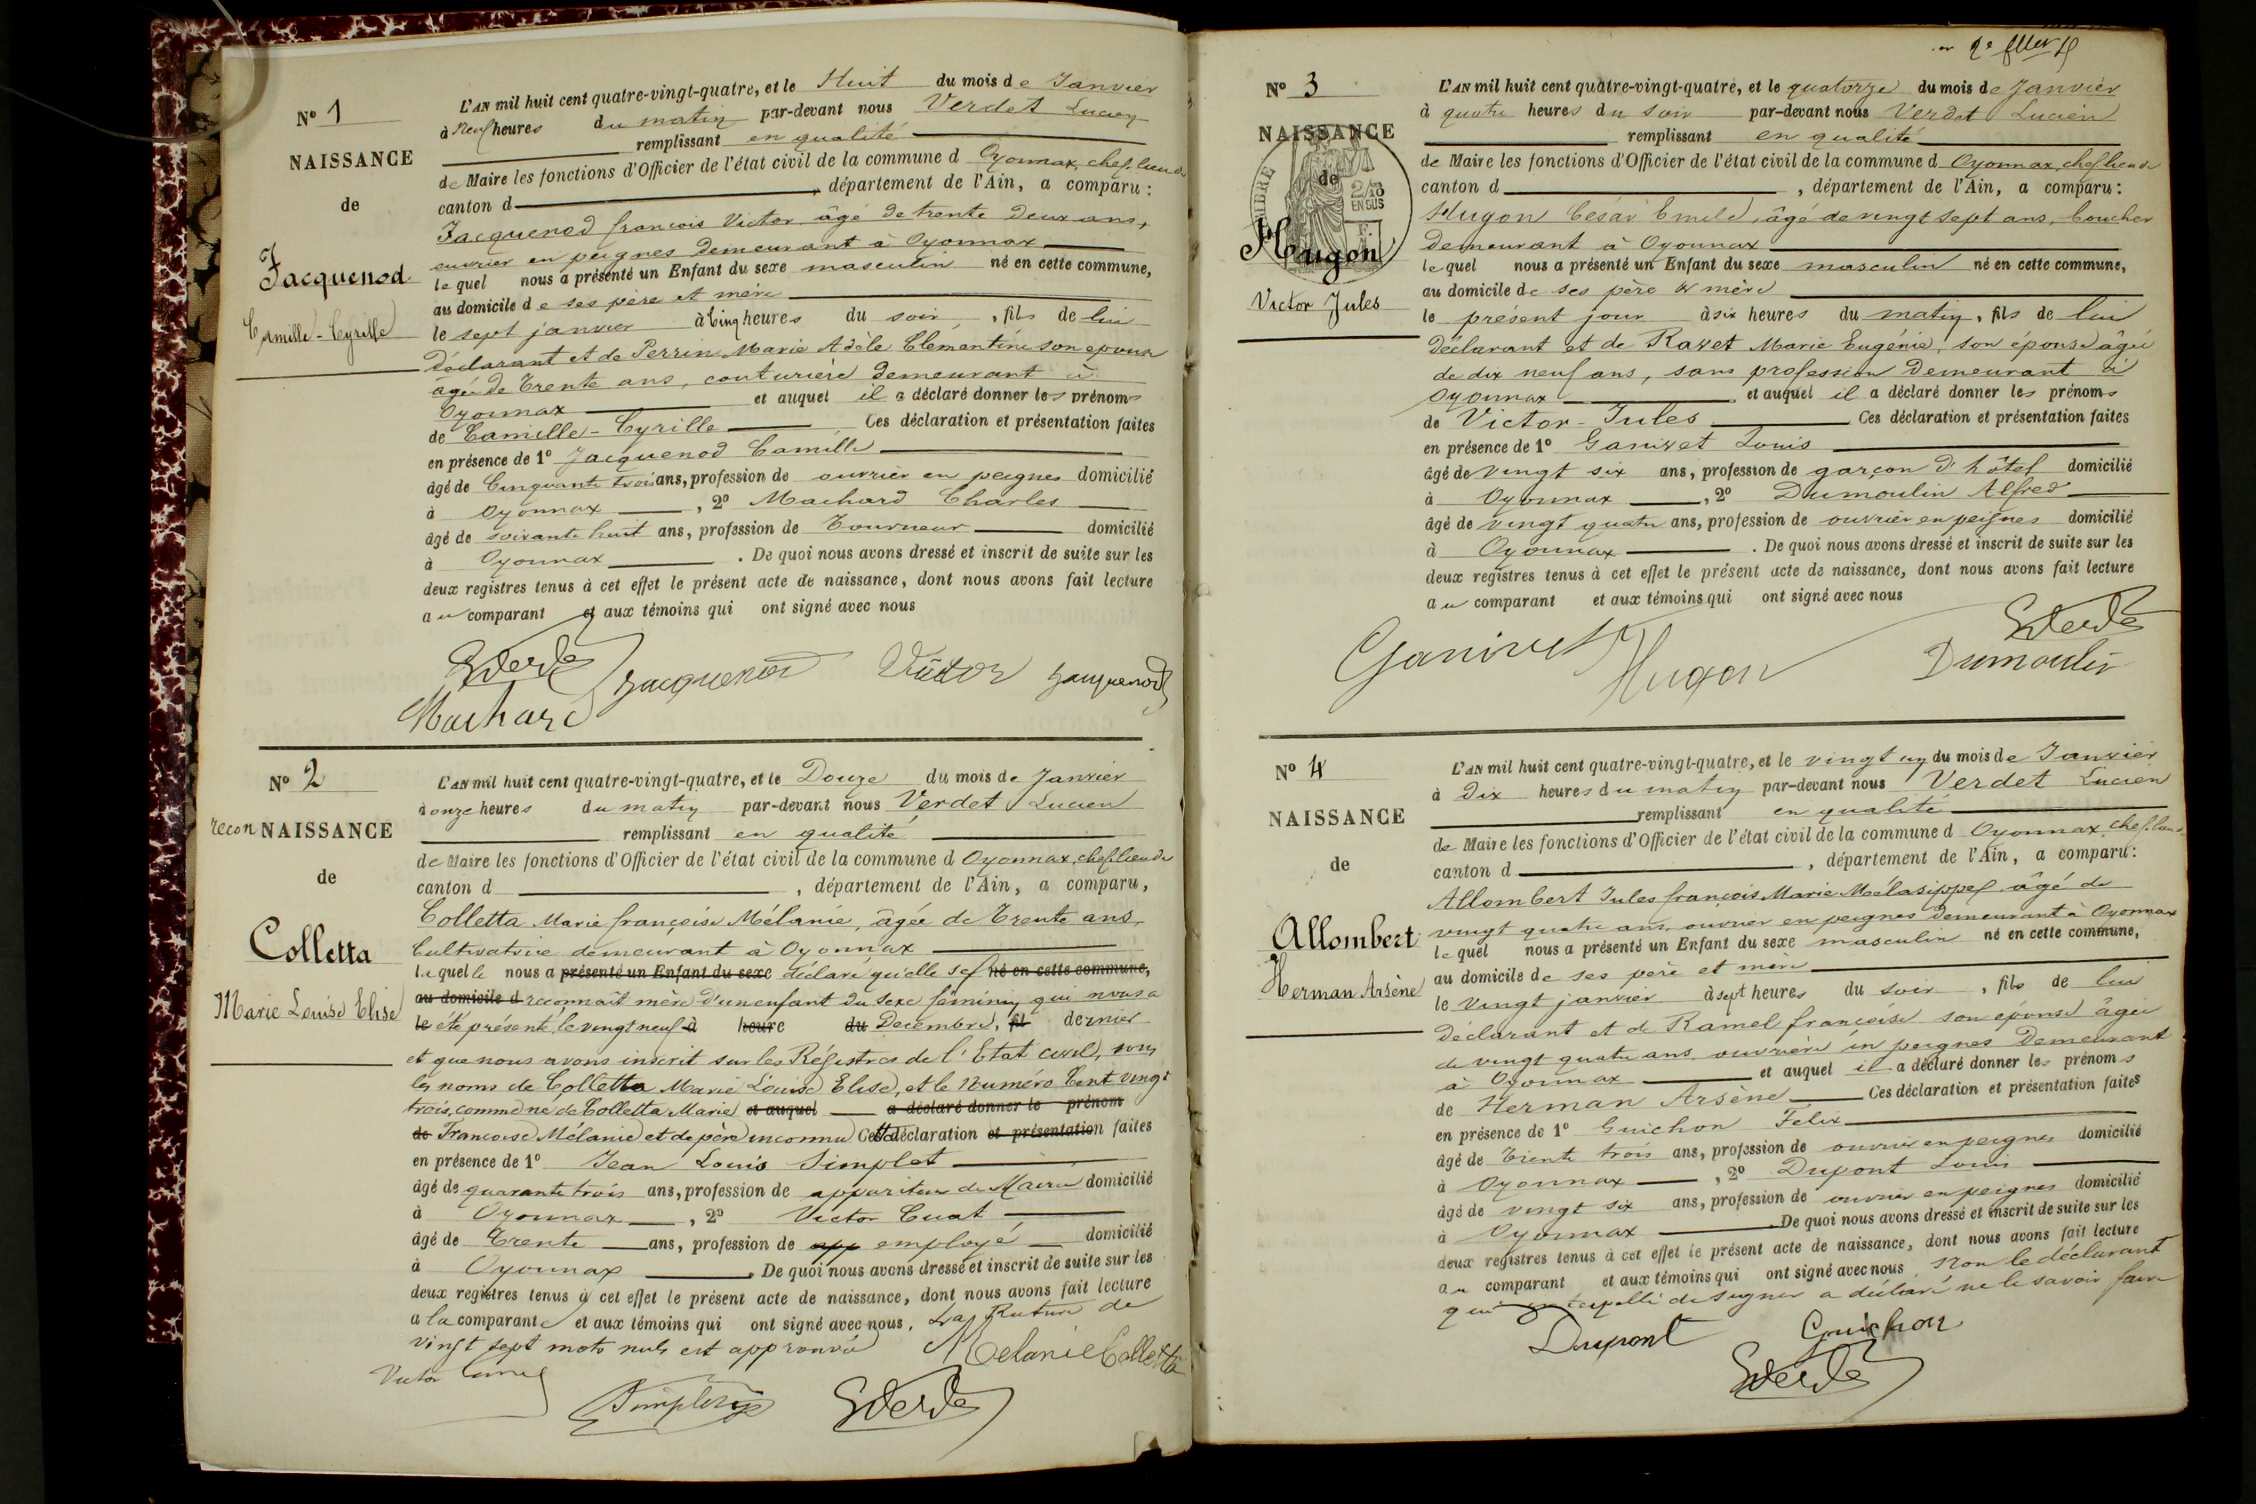 Nº 1
NAISSANCE
de
Jacquenod
Camille-Cyrille
L'AN mil huit cent quatre-vingt-quatre, et le Huit du mois de Janvier
à Neuf heures du matin par-devant nous Verdet Lucien
remplissant en qualité
de Maire les fonctions d'Officier de l'état civil de la commune d Oyonnax, chef lieu de
canton d , département de l'Ain, a comparu :
Jacquenod françois Victor âgé de trente deux ans,
ouvrier en peignes demeurant à Oyonnax
le quel nous a présenté un Enfant du sexe masculin né en cette commune,
au domicile de ses père et mère
le sept janvier à Cinq heures du soir , fils de lui
Déclarant et de Perrin Marie Adèle Clémentine son épouse
âgée de Trente ans, couturière demeurant à
Oyonnax et auquel il a déclaré donner les prénoms
de Camille-Cyrille Ces déclaration et présentation faites
en présence de 1º Jacquenod Camille
âgé de Cinquante trois ans, profession de ouvrier en peignes domicilié
à Oyonnax , 2º Machard Charles
âgé de soixante huit ans, profession de Tourneur domicilié
à Oyonnax . De quoi nous avons dressé et inscrit de suite sur les
deux registres tenus à cet effet le présent acte de naissance, dont nous avons fait lecture
au comparant et aux témoins qui ont signé avec nous
Verdet Jacquenod Victor Jacquenod
Machard
Nº 2
recon NAISSANCE
de
Colletta
Marie Louise Elise
L'AN mil huit cent quatre-vingt-quatre, et le Douze du mois de Janvier
à onze heures du matin par-devant nous Verdet Lucien
remplissant en qualité
de Maire les fonctions d'Officier de l'état civil de la commune d Oyonnax, chef lieu de
canton d , département de l'Ain, a comparu,
Colletta Marie françoise Mélanie, âgée de Trente ans,
Cultivatrice demeurant à Oyonnax
laquelle nous a présenté un Enfant du sexe déclaré qu'elle se né en cette commune,
au domicile d reconnait mère d'un enfant du sexe féminin qui nous a
le été présenté, le vingt neuf à heure du Décembre, fil dernier
et que nous avons inscrit sur les Régistres de l'Etat civil, sous
les noms de Colletta Marie Louise Elise, et le Numéro Cent vingt
trois, comme né de Colletta Marie et auquel a déclaré donner le prénom
de Françoise Mélanie et de père inconnu Cette déclaration et présentation faites
en présence de 1º Jean Louis Simplet
âgé de quarante trois ans, profession de appariteur de Mairie domicilié
à Oyonnax , 2º Victor Cuat
âgé de Trente ans, profession de app employé domicilié
à Oyonnax . De quoi nous avons dressé et inscrit de suite sur les
deux registres tenus à cet effet le présent acte de naissance, dont nous avons fait lecture
a la comparante et aux témoins qui ont signé avec nous, La Rature de
vingt sept mots nuls est approuvée Melanie Colletta
Victor
Verdet
Nº 3
NAISSANCE
de
Hugon
Victor Jules
L'AN mil huit cent quatre-vingt-quatre, et le quatorze du mois de Janvier
à quatre heures du soir par-devant nous Verdet Lucien
remplissant en qualité
de Maire les fonctions d'Officier de l'état civil de la commune d Oyonnax, chef lieu de
canton d , département de l'Ain, a comparu :
Hugon César Emile, âgé de vingt sept ans, boucher
demeurant à Oyonnax
lequel nous a présenté un Enfant du sexe masculin né en cette commune,
au domicile de ses père & mère
le présent jour à six heures du matin, fils de lui
Déclarant et de Ravet Marie Eugénie, son épouse âgée
de dix neuf ans, sans profession demeurant à
Oyonnax et auquel il a déclaré donner les prénoms
de Victor-Jules Ces déclaration et présentation faites
en présence de 1º Ganivet Louis
âgé de vingt six ans, profession de garçon d'hôtel domicilié
à Oyonnax , 2º Dumoulin Alfred
âgé de vingt quatre ans, profession de ouvrier en peignes domicilié
à Oyonnax . De quoi nous avons dressé et inscrit de suite sur les
deux registres tenus à cet effet le présent acte de naissance, dont nous avons fait lecture
au comparant et aux témoins qui ont signé avec nous
Ganivet Hugon Verdet
Dumoulin
Nº 4
NAISSANCE
de
Allombert
Herman Arsène
L'AN mil huit cent quatre-vingt-quatre, et le vingt un du mois de Janvier
à Dix heures du matin par-devant nous Verdet Lucien
remplissant en qualité
de Maire les fonctions d'Officier de l'état civil de la commune d Oyonnax, chef lieu
canton d , département de l'Ain, a comparu:
Allombert Jules françois Marie Mélasippe âgé de
vingt quatre ans, ouvrier en peignes demeurant à Oyonnax
lequel nous a présenté un Enfant du sexe masculin né en cette commune,
au domicile de ses père et mère
le Vingt janvier à sept heures du soir , fils de lui
Déclarant et de Ramel françoise son épouse âgée
de vingt quatre ans ouvrière en peignes demeurant
à Oyonnax et auquel il a déclaré donner les prénoms
de Herman Arsène Ces déclaration et présentation faites
en présence de 1º Guichon Felix
âgé de Trente trois ans, profession de ouvrier en peignes domicilié
à Oyonnax , 2º Dupont Louis
âgé de vingt six ans, profession de ouvrier en peignes domicilié
à Oyonnax .De quoi nous avons dressé et inscrit de suite sur les
deux registres tenus à cet effet le présent acte de naissance, dont nous avons fait lecture
au comparant et aux témoins qui ont signé avec nous Non le déclarant
qui de signer a déclaré ne le savoir faire
Dupont Guichon
Verdet